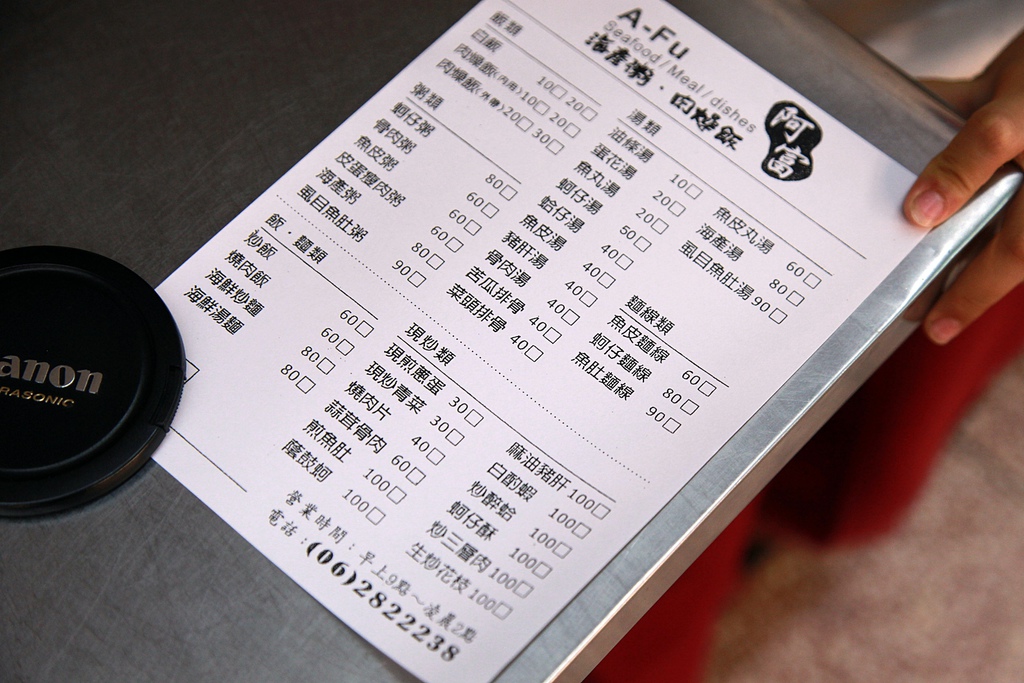 A-Fu
Seafood/Meal/dishes
海產粥．肉燥飯
阿富
飯類
白飯 10□ 20□
肉燥飯(內用)10□ 20□
肉燥飯(外帶)20□ 30□
粥類
蚵仔粥 80□
骨肉粥 60□
魚皮粥 60□
皮蛋瘦肉粥 60□
海產粥 80□
虱目魚肚粥 90□
湯類
油條湯 10□
蛋花湯 20□
魚丸湯 20□
蚵仔湯 50□
蛤仔湯 40□
魚皮湯 40□
豬肝湯 40□
骨肉湯 40□
苦瓜排骨 40□
菜頭排骨 40□
魚皮丸湯 60□
海產湯 80□
虱目魚肚湯 90□
麵線類
魚皮麵線 60□
蚵仔麵線 80□
魚肚麵線 90□
飯．麵類
炒飯 60□
燒肉飯 60□
海鮮炒麵 80□
海鮮湯麵 80□
現炒類
現煎蔥蛋 30□
現炒青菜 30□
燒肉片 40□
蒜茸骨肉 60□
煎魚肚 100□
蔭鼓蚵 100□
麻油豬肝 100□
白酌蝦 100□
炒鮮蛤 100□
蚵仔酥 100□
炒三層肉 100□
生炒花枝 100□
營業時間：早上9點～凌晨2點
電話：(06)2822238
anon
RASONIC